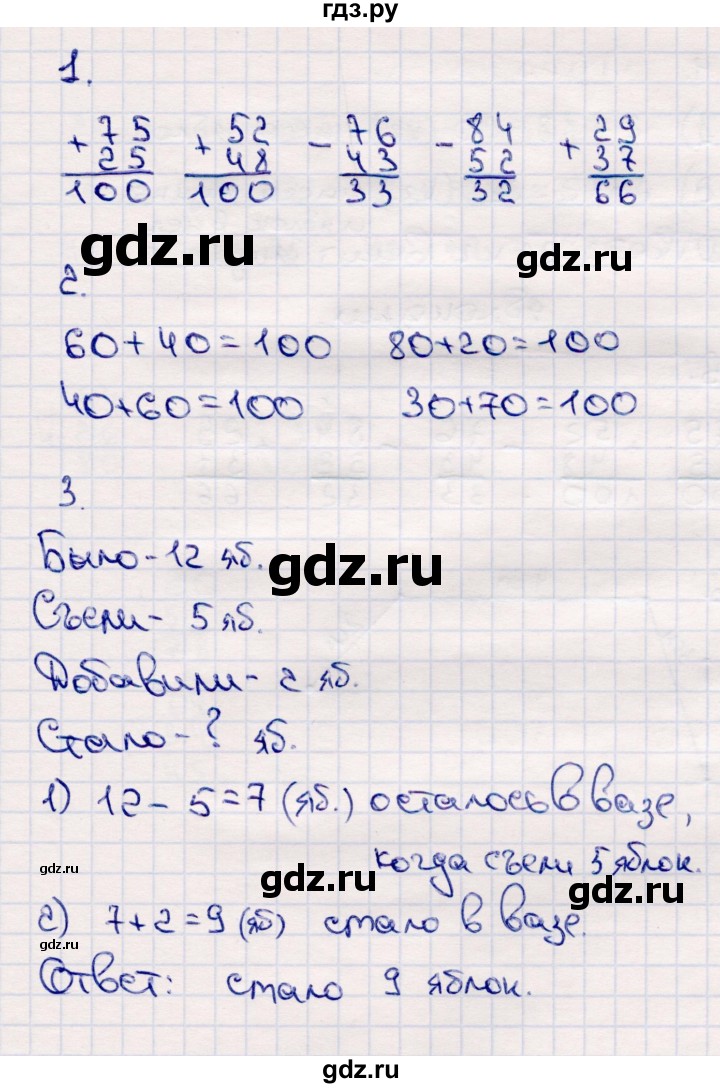 гдз.ру
1.
+ 75 + 52 - 76 - 84 + 29
25 48 43 52 37
100 100 33 32 66
gdz.ru gdz.ru
2.
60+40=100 80+20=100
40+60=100 30+70=100
3.
Было - 12 яб.
gdz.ru
Съели - 5 яб.
Добавили - 2 яб.
Стало - ? яб.
1) 12 - 5 = 7 (яб.) осталось в вазе,
gdz.ru когда съели 5 яблок.
gdz.ru gdz.ru
2) 7+2=9 (яб) стало в вазе.
gdz.ru
Ответ: стало 9 яблок.
gdz.ru